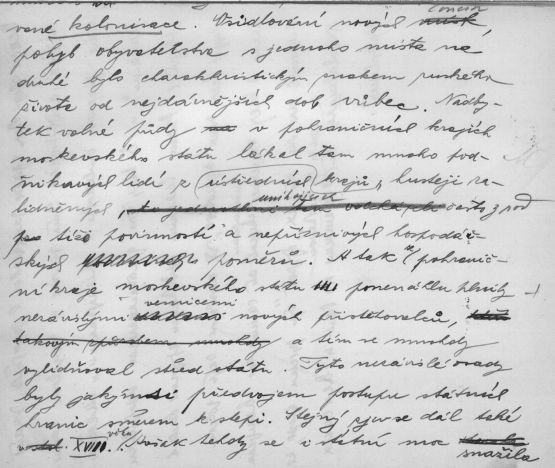 vané kolonisace. Osidlování nových končin
pohyb obyvatelstva s jednoho místa na
druhé bylo charakteristickým znakem ruského
života od nejdávnějších dob vůbec. Nadby-
tek volné půdy v pohraničních krajích
moskevského státu lákal tam mnoho pod-
nikavých lidí z (ústředních) krajů, hustěji za-
lidněných, unikajících často z pod
tíže povinností a nepříznivých hospodář-
ských poměrů. A tak pohranič-
ní kraje moskevského státu ponenáhlu plnily
nezávislými vesnicemi nových přistěhovalců,
a tím se mnohdy
vylidňoval střed státu. Tyto nezávislé osady
byly jakýmsi předvojem postupu státních
hranic směrem k stepi. Stejný zjev se dál také
v XVIII. věku, však tehdy se i státní moc
snažila